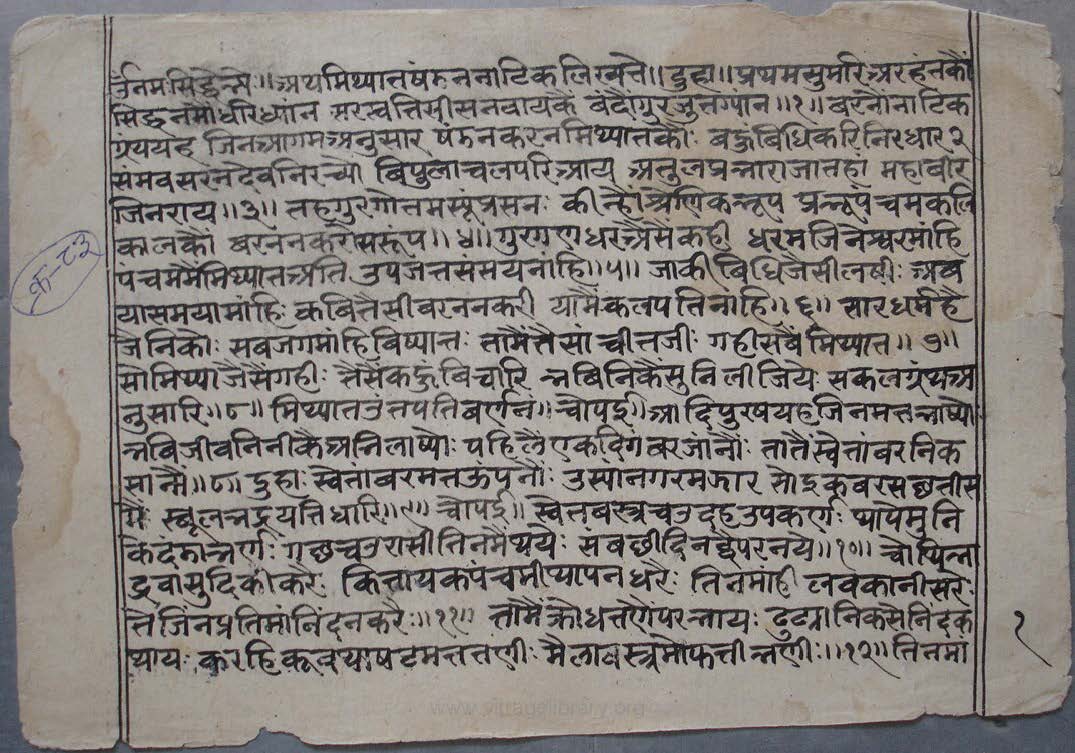 उँनमःसिद्धेभ्यो॥अथमिथ्यातषंडननाटिकलिख्यते॥दुहा॥प्रथमसुमरिअरहंतकौं
सिद्धनमोधरिध्यांन सरस्वत्तिसीसनवायकैं बंदौगुरजुनग्यांन॥१॥बरनौंनाटिक
ग्रंथयह जिनआगमअनुसार षंडनकरनमिथ्यातकौ: बहुबिधिकरिनिरधार२
समवसरनदेवनिरच्यो बिपुलाचलपरिआय अतुलप्रभाराजातहां महाबीर
जिनराय॥३॥ तहगुरगौतमसूंप्रसन: कीन्हौंश्रेणिकभूप प्रभूपंचमकलि
कालकौं बरननकरौसरूप॥४॥गुरगणधरअैसेकही धरमजिनेश्वरमांहि
पचममेंमिथ्यातअति उपजतसंसयनांहि॥५॥ जाकीबिधिजैसीलषी: अब
यासमयामांहि: कबितैसीबरननकरी यामैकलपतिनाहि॥६॥ सारधर्महै
जैनिकौ: सबजगमांहिविष्यात: तामैंतैसांचीतजी: गहीसबैंमिथ्यात॥७॥
सोमिथ्याजैसैंगही: तैसैंकहुबिचारि भबिनिकैंसुनिलीजिये सकलग्रंथअ
नुसारि॥८॥ मिथ्यातउतपतिबर्णनं॥चौपई॥आदिपुरषयहजिनमतभाष्यो
भबिजीवनिनीकैअभिलाष्यौ: पहिलैंएकदिगंबरजांनौ: तातैस्वेतांबरनिक
सानौं॥८॥दुहा: स्वेतांबरमतऊपनौ: उस्यानगरमझार सोइकबरसछतीस
मै: स्थूलभद्रयतिधारि॥९॥चौपई॥ स्वेतबस्त्रचउदहउपकर्ण: थापेमुनि
किंदंडाभर्ण: गछचउरासीतिनमैथये: संबछीदिनद्वैपरनये॥१०॥ चोथिभा
द्रवासुदिकीकरै: कित्तायकपंचमीथापनधरै: तिनमांही लवकानीसरे:
तैजिनप्रतिमांनिंदनकरै:॥११॥ तामैंक्रोधतणैपरभाय: ढुटयानिकसैनिंदक
थाय: करहिकूवथाषटमततणी: मैलाबस्त्रमोफतीभणी:॥१२॥तिनमां
१
क-८३
www.vitragelibrary.org